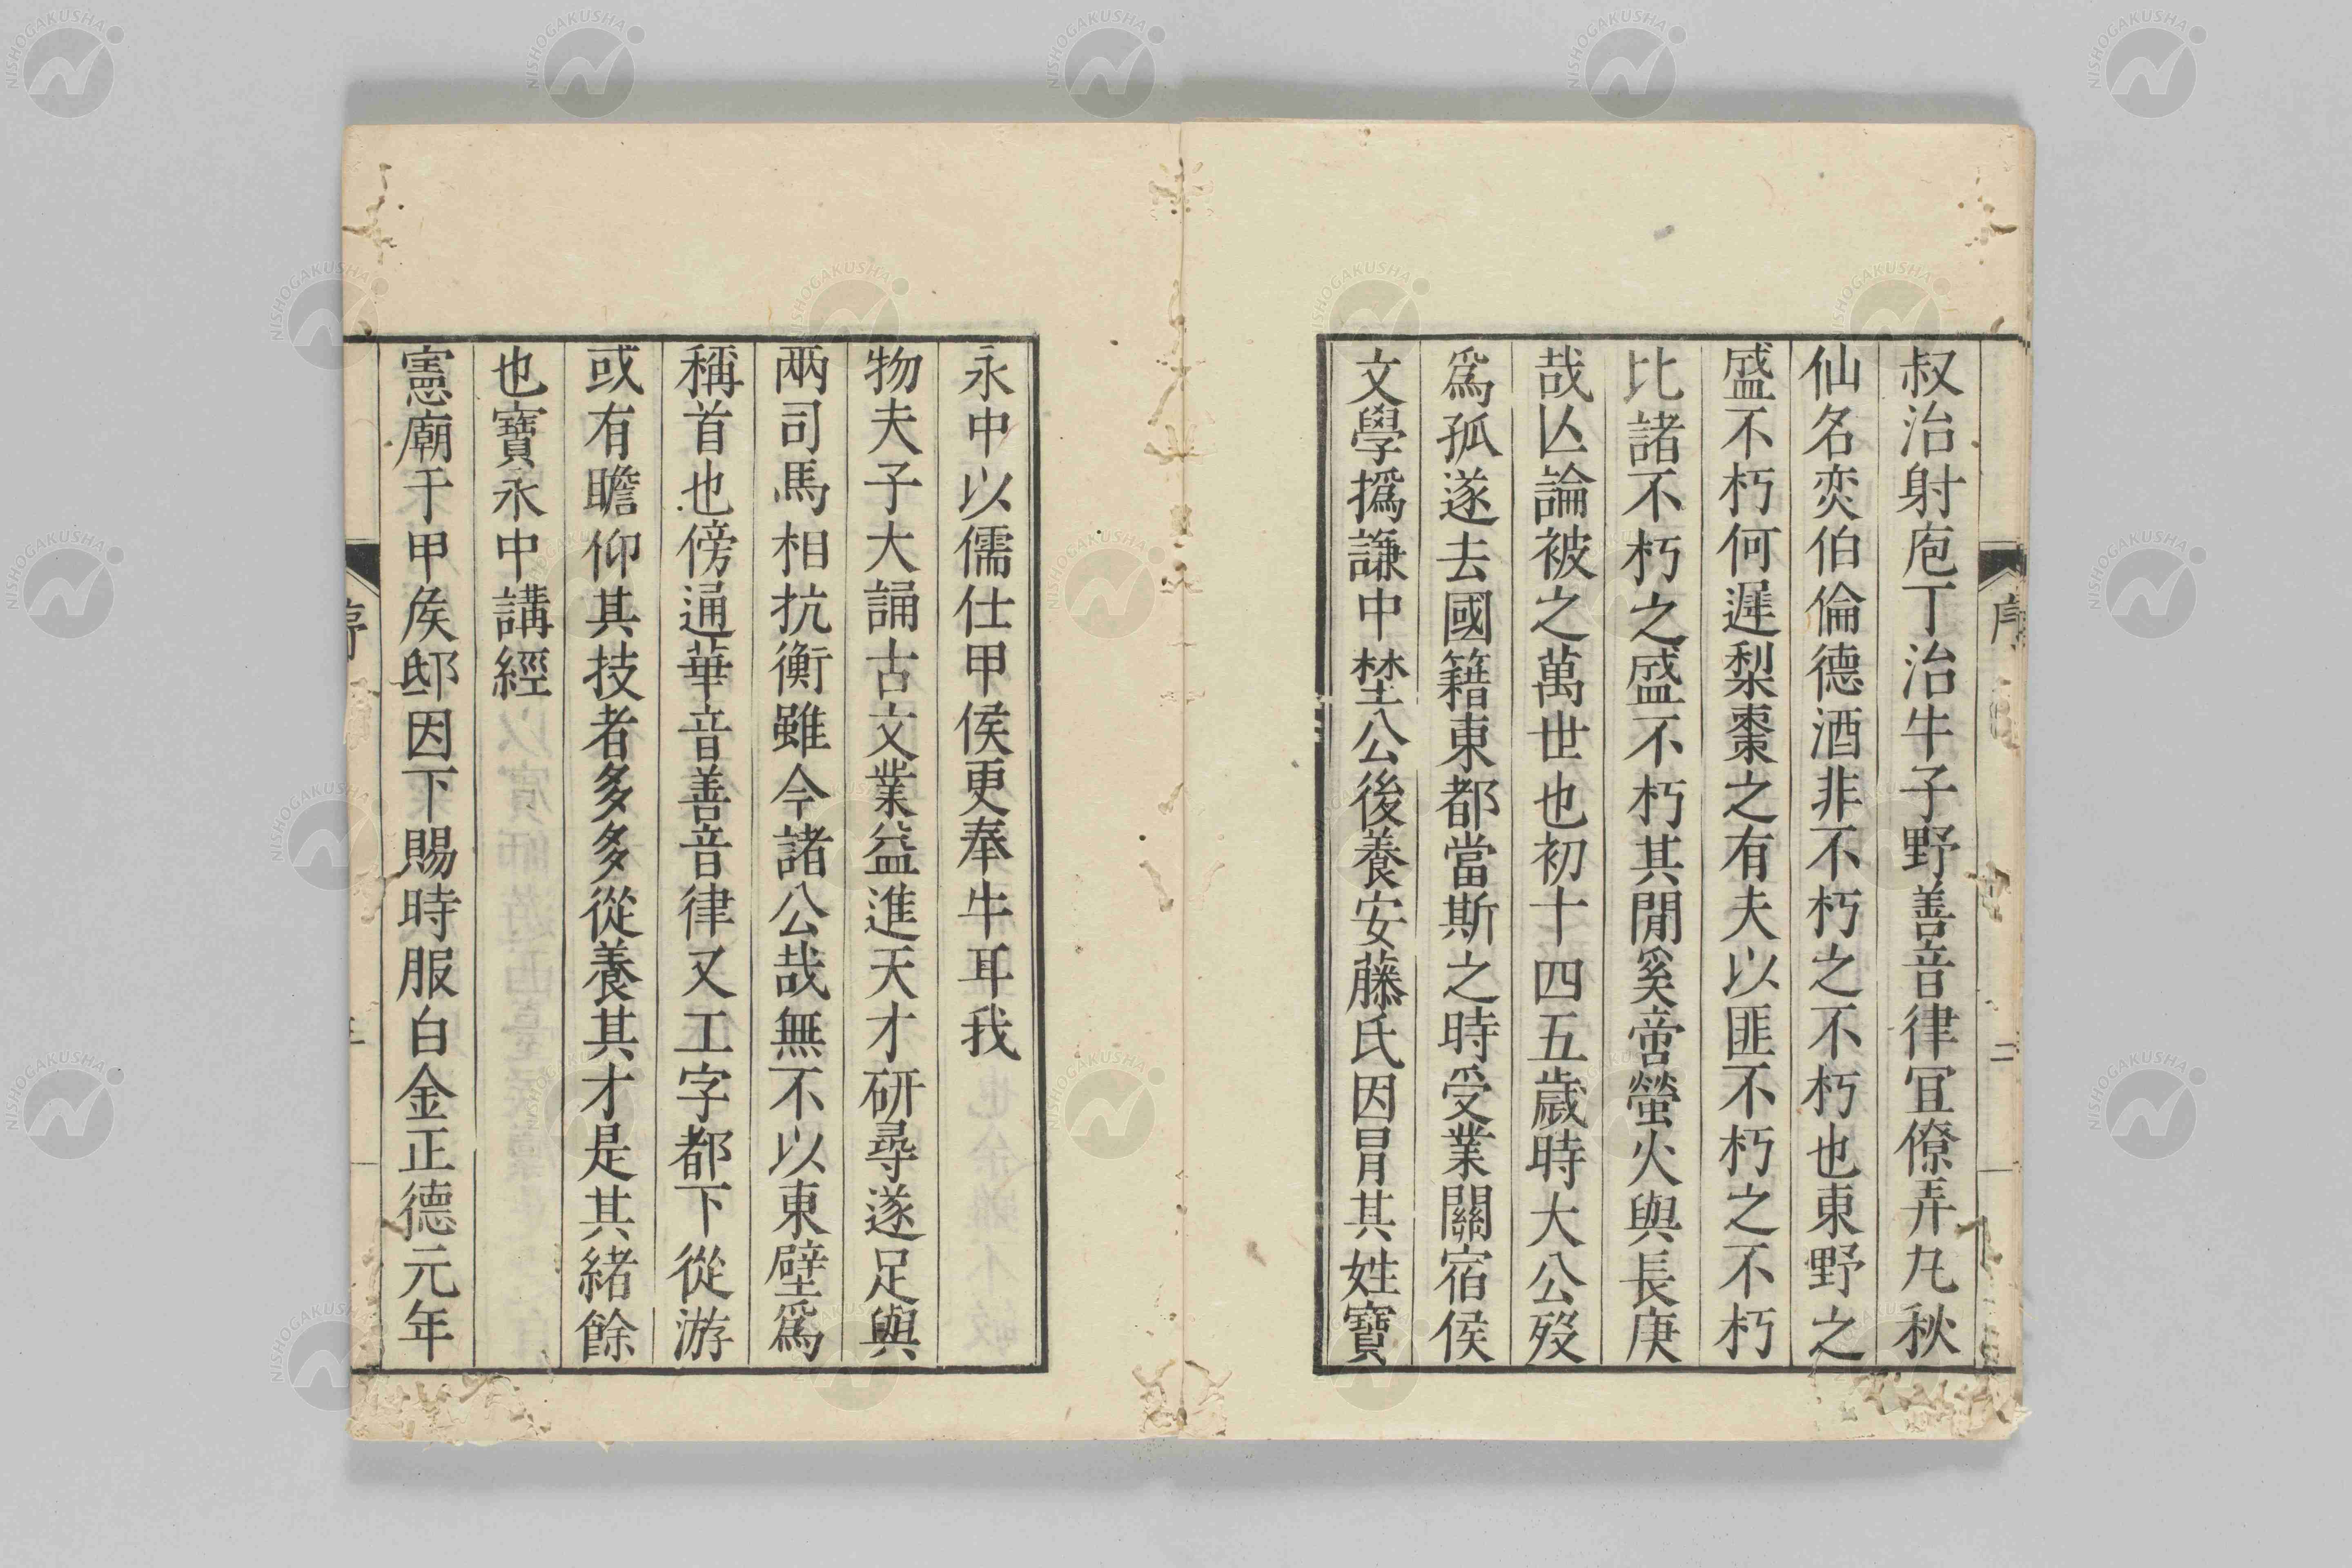 叔治射庖丁治牛子野善音律冝僚弄丸秋
仙名奕伯倫德酒非不朽之不朽也東野之
盛不朽何遲梨棗之有夫以匪不朽之不朽
比諸不朽之盛不朽其閒奚啻螢火與長庚
哉亾論被之萬世也初十四五歲時大公歿
爲孤遂去國籍東都當斯之時受業關宿侯
文學撝謙中埜公後養安藤氏因冒其姓寶
永中以儒仕甲侯更奉牛耳我
物夫子大誦古文業益進天才研尋遂足與
兩司馬相抗衡雖今諸公哉無不以東壁爲
稱首也傍通華音善音律又工字都下從游
或有瞻仰其技者多多從養其才是其緒餘
也寶永中講經
憲廟于甲矦邸因下賜時服白金正德元年
序
二
NISHOGAKUSHA